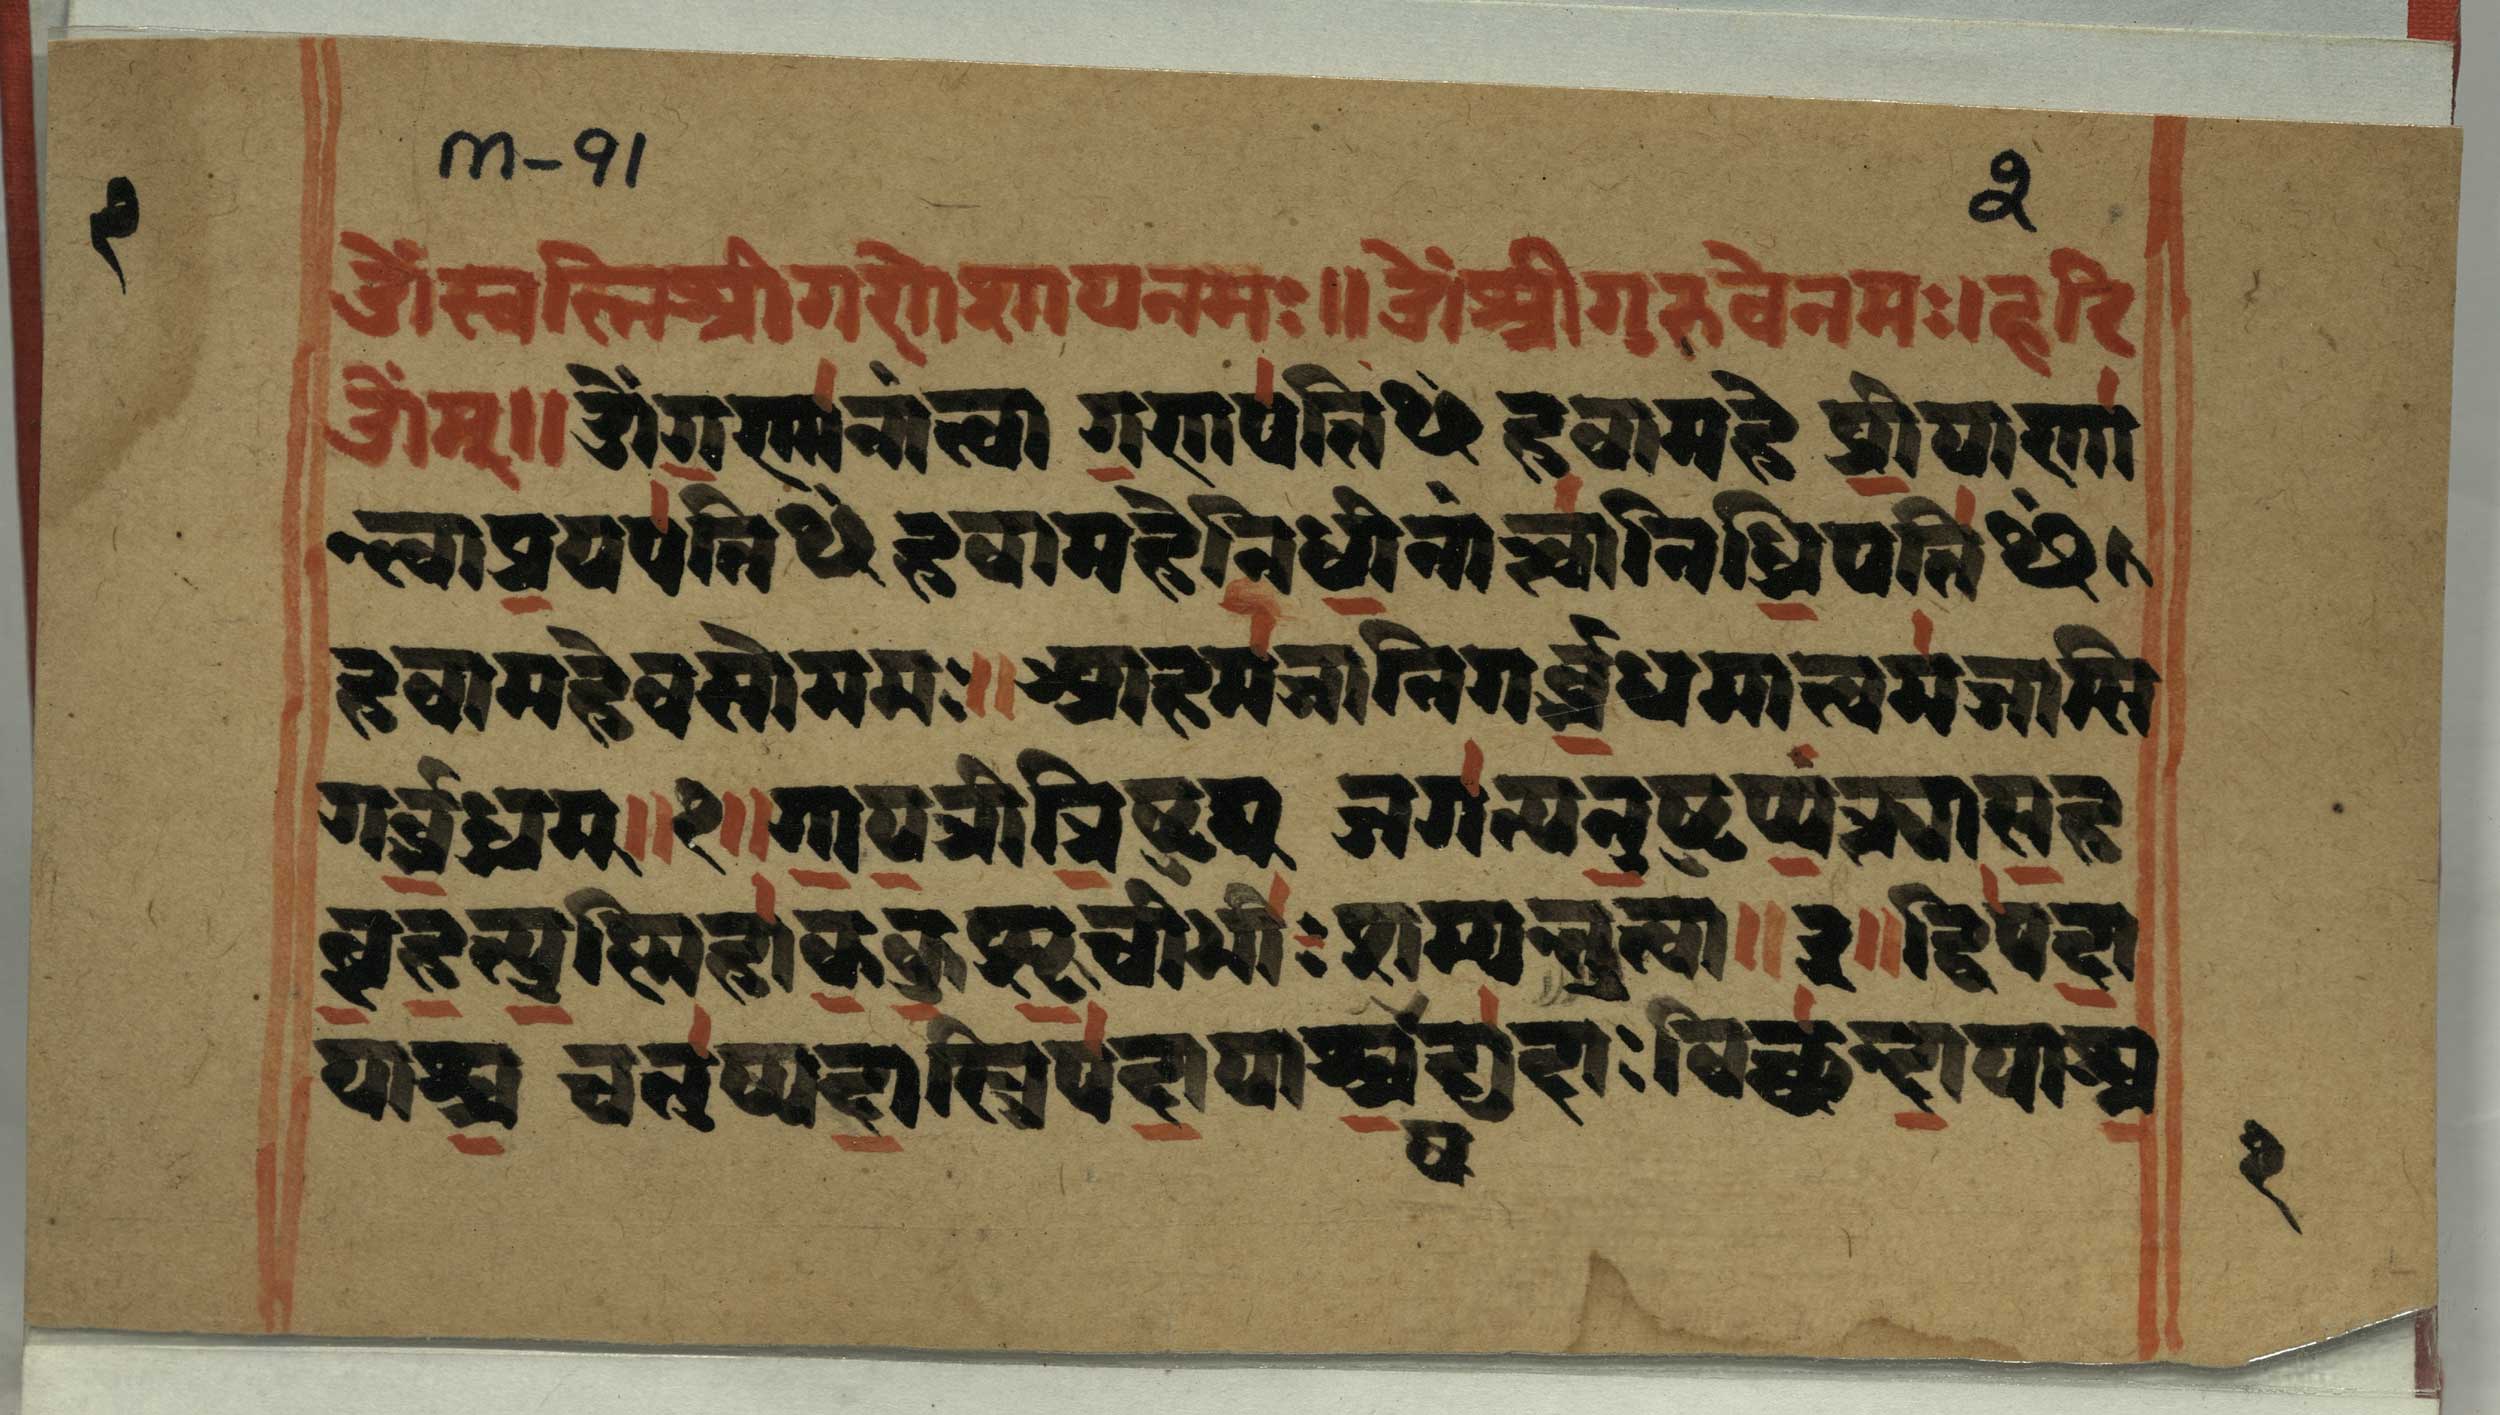 m-91
२
१
ॐस्वस्तिश्रीगणेशायनमः॥ॐश्रीगुरुवेनमः।हरि
ॐम्॥ॐगणानांत्वा गणपतिᳮ हवामहे प्रीयाणां
त्वाप्रयपतिᳮ हवामहेनिधीनांत्वानिधिपतिᳮ
हवामहेवसोममः॥आहमजानिगर्ब्भधमात्वमजासि
गर्ब्भधम्॥१॥गायत्रीत्रिष्टुप् जगत्यनुष्टुप्पंक्त्यासह
बृहत्युस्मिहाककुप्सूचीभीःशम्यन्तुत्वा॥२॥द्विपदा
याश्च चतुष्पदास्त्रिपदायाश्चंद्यदाःविछन्दायाश्च
ष
१